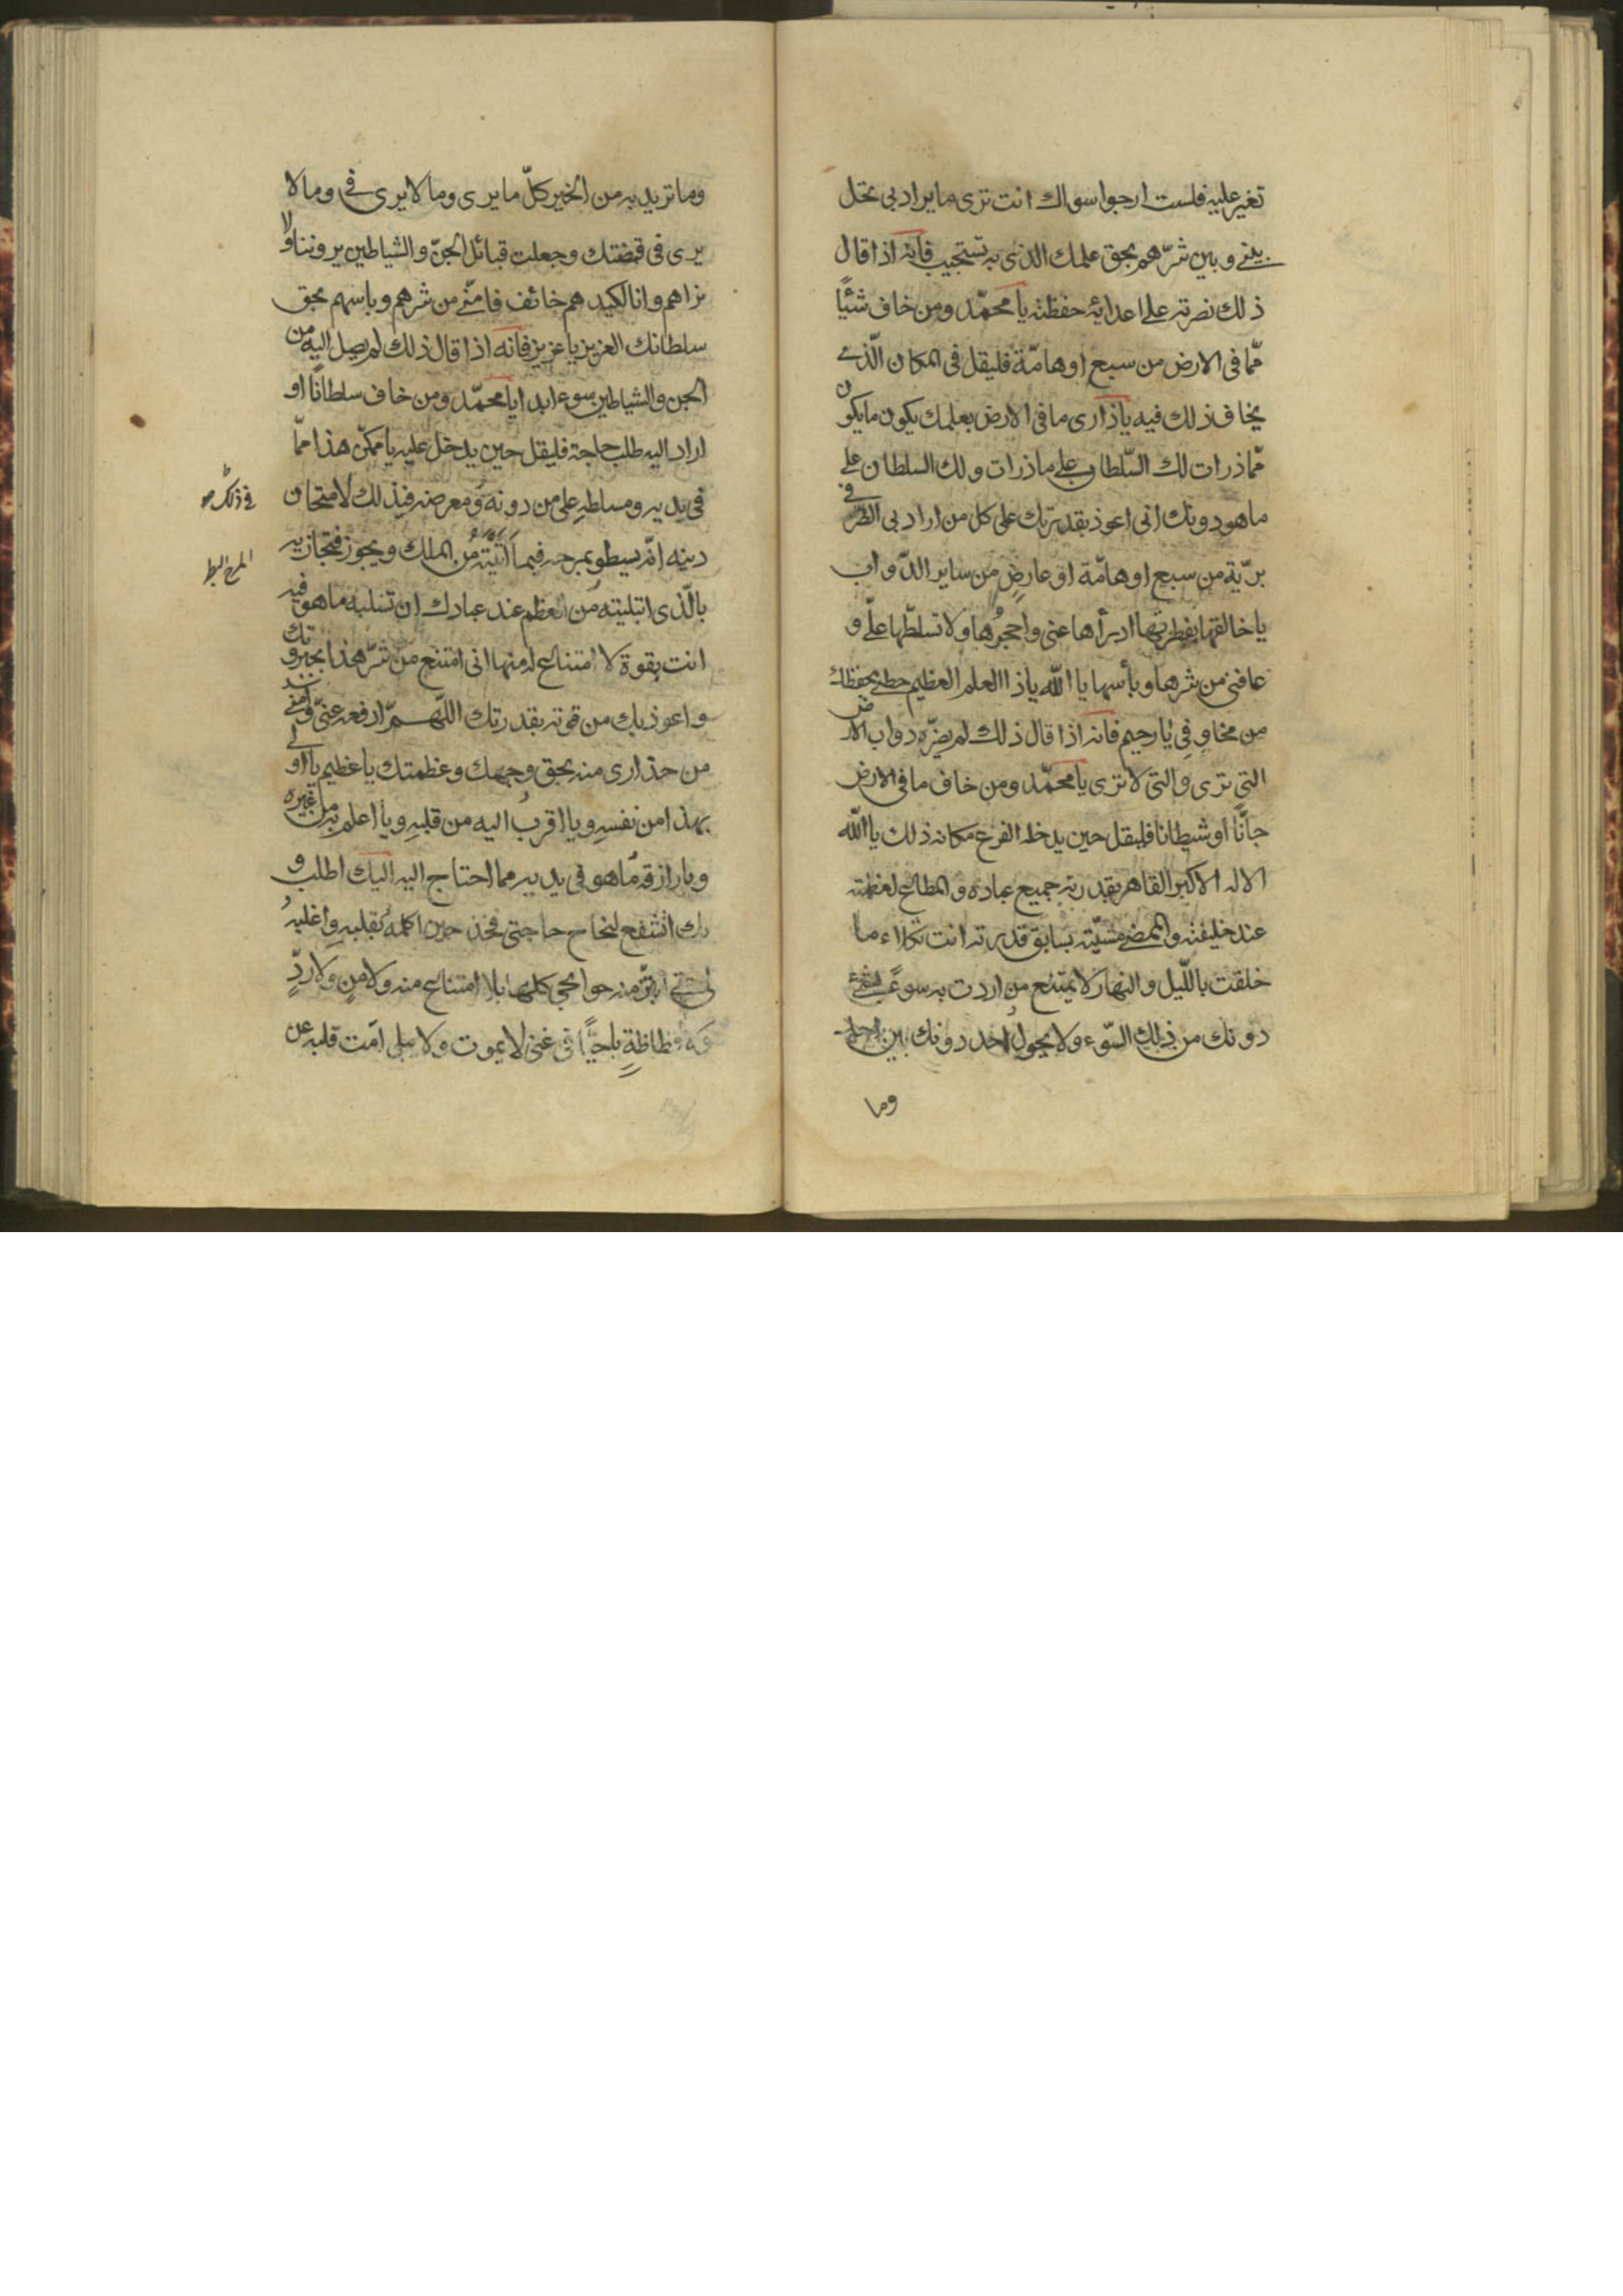 تغير عليه فلست ارجوا سواك انت ترى ما يراد بى تحل
بينى و بين شرّهم بحق علمك الذى به تستجيب فانه اذا قال
ذلك نصرته على اعدايه حفظته يا محمّد ومن خاف شئًا
ممّا فى الارض من سبع او هامّة فليقل فى المكان الّذى
يخاف ذلك فيه يا ذارى ما فى الارض بعلمك يكون ما يكون
ممّا ذرات لك السّلطان على ما ذرات ولك السلطان على
ما هو دونك انى اعوذ بقدرتك على كل من اراد بى الضرّ فى
بريّة من سبع او هامّة او عارضٍ من ساير الدّواب
يا خالقها بفطرتها ادرأها عنى واحجزها ولا تسلطّها علىّ و
عافنى من شرها وبأسها يا الله يا ذا العلم العظيم حطنى بحفظك
من مخاوفى يا رحيم فانه اذا قال ذلك لم يضرّه دواب الارض
التى ترى والتى لا ترى يا محمّد ومن خاف ما فى الارض
جانًّا او شيطانا فليقل حين يدخله الفزع مكانه ذلك يا الله
الاله الاكبر القاهر بقدرته جميع عباده والمطاع لعظمته
عند خليقته والممضى مشيّته بسابق قدرته انت تكلاء ما
خلقت بالليل والنهار لا يمتنع من اردت به سوءً بشىء
دونك من ذلك السّوء ولا يحول احد دونك بين احد
وما
وما تريد به من الخير كلّ ما يرى وما لا يرى فى وما لا
يرى فى قبضتك وجعلت قبائل الجنّ والشياطين يروننا ولا
نراهم وانا لكيدهم خائف فامنّى من شرهم وباسهم بحق
سلطانك العزيز يا عزيز فانه اذا قال ذلك لم يصل اليه من
الجن والشياطين سوء ابدا يا محمّد ومن خاف سلطانًا او
اراد اليه طلب حاجة فليقل حين يدخل عليه يا ممكّن هذا ممّا
فى يديه ومسلطه على من دونه ومعرضه فى ذلك لامتحان
دينه انّه يسطو بمرحه فيما آتيته من الملك ويجوز فتجازيه
بالّذى ابتليته من العظم عند عبادك ان تسلبه ما هو فيه
انت بقوة لا امتناع له منها انى امتنع من شرّ هذا بجبروتك
واعوذ بك من قوته بقدرتك اللهـم ادفعه عنّى وآمنى
من حذارى منه بحق وجهك وعظمتك يا عظيم يا اولى
بهذا من نفسه ويا اقرب اليه من قلبه ويا اعلم به من غيره
ويا رازقه ما هو فى يديه مما احتاج اليه اليك اطلب و
بك اتشفع لنجاح حاجتى فخذ حين اكلمه بقلبه واغلبه
لى حتى ابتزّ منه حوائجى كلها بلا امتناع منه ولا منٍ ولا ردٍّ
ولا فظاظةٍ يا حيًّا فى غنى لا يموت ولا يبلى امت قلبه عن